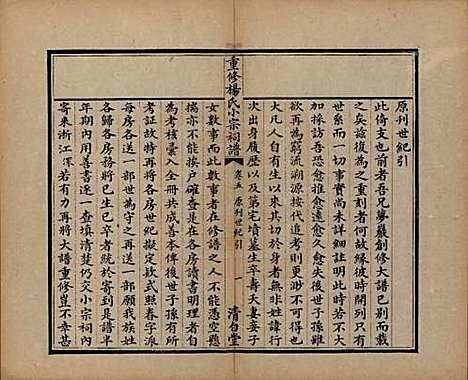 原刊世紀引
此倚支也前者吾兄夢巖創修大譜已別而載
之矣諗復為之重引其故緣彼時開列只有
世系而一切事實尚未詳細註明于此若不大
加修葺吾恐愈推愈遠愈久愈失後世子孫雖
欲再為窮流溯源按代追考則更渺不可得也
大凡自人生以來其切於身者無非姓諱行
次出身履歷以及第宅墳墓生卒壽夭妻妾子
重修楊氏小宗祠譜
卷五 原刊世紀引
清白堂
女數事而此數事者在修譜之人不能憑空懸
揣亦不能挨戶稽查全在各房讀書明理者自
為考核彙入全冊共成善本俾後世子孫有所
考証故特再將各房世紀擬定款式照春字派
每房各送一部世為守之再送一部願我族姓
各歸各房務將已生已卒者或三年期內或五
年期內用善書逐一查填清楚仍交小宗祠內
寄來浙江渾若有力再將大譜重修豈不幸甚